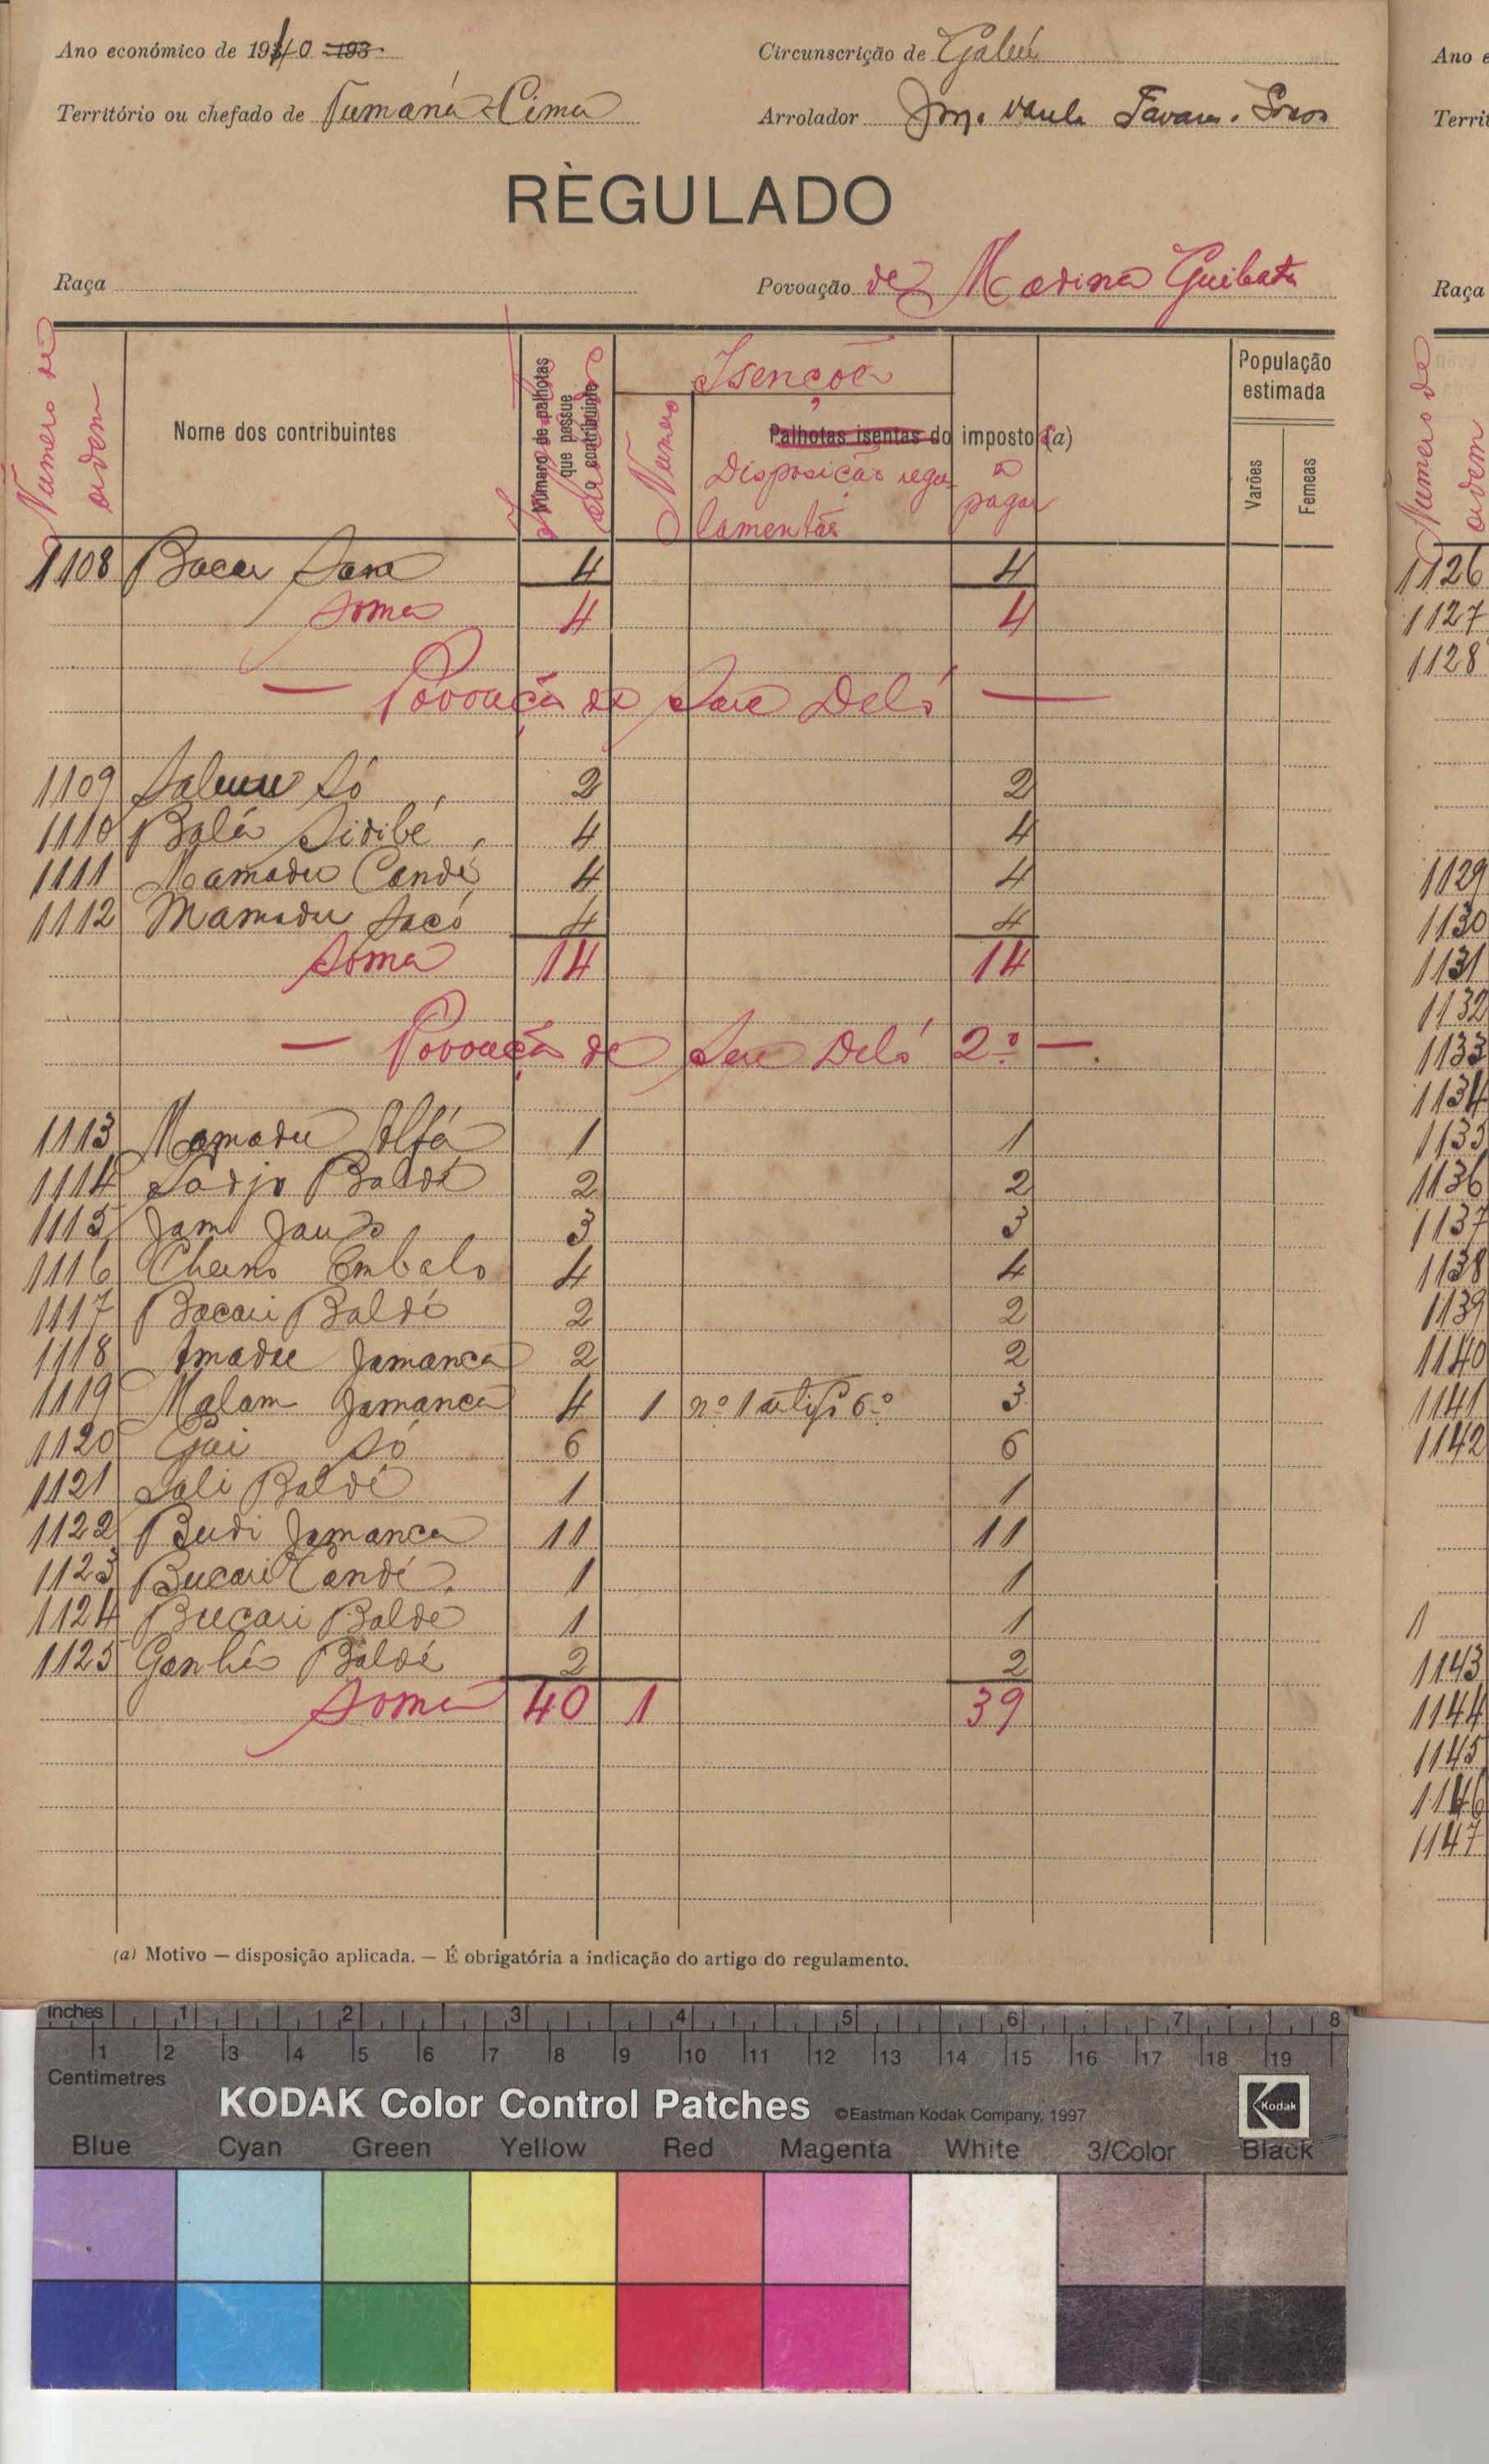 Ano económico de 1940 193
Circunscrição de Gabú
Território ou chefado de Tumaná de Cima
Arrolador Tavares
RÈGULADO
Raça
Povoação de Madina Guibata
Número de ordem
Nome dos contribuintes
Número de palhotas que possue o contribuinte
Isenções
Número
Palhotas isentas do imposto (a)
Disposição regulamentar
a pagar
População estimada
Varões
Femeas
1108 Bacar Sané 4 4
Soma 4 4
— Povoação de Sare Deló —
1109 Só 2 2
1110 Balá Sidibé 4 4
1111 Mamadu Candé 4 4
1112 Mamadu Sacó 4 4
Soma 14 14
— Povoação de Sare Deló 2.º —
1113 Mamadu Alfá 1 1
1114 Sadjo Baldé 2 2
1115 Jam Jau 3 3
1116 Cherno Embalo 4 4
1117 Bacari Baldé 2 2
1118 Amadu Jamanca 2 2
1119 Malam Jamanca 4 1 nº 1 artigo 6.º 3
1120 Gai Só 6 6
1121 Sali Baldé 1 1
1122 Budi Jamanca 11 11
1123 Bucari Candé 1 1
1124 Bucari Baldé 1 1
1125 Baldé 2 2
Soma 40 1 39
(a) Motivo — disposição aplicada. — É obrigatória a indicação do artigo do regulamento.
Ano e
Territ
Raça
Número de ordem
1126
1127
1128
1129
1130
1131
1132
1133
1134
1135
1136
1137
1138
1139
1140
1141
1142
1
1143
1144
1145
1146
1147
inches 1 2 3 4 5 6 7 8
1 2 3 4 5 6 7 8 9 10 11 12 13 14 15 16 17 18 19
Centimetres
KODAK Color Control Patches ©Eastman Kodak Company, 1997
Kodak
Blue Cyan Green Yellow Red Magenta White 3/Color Black